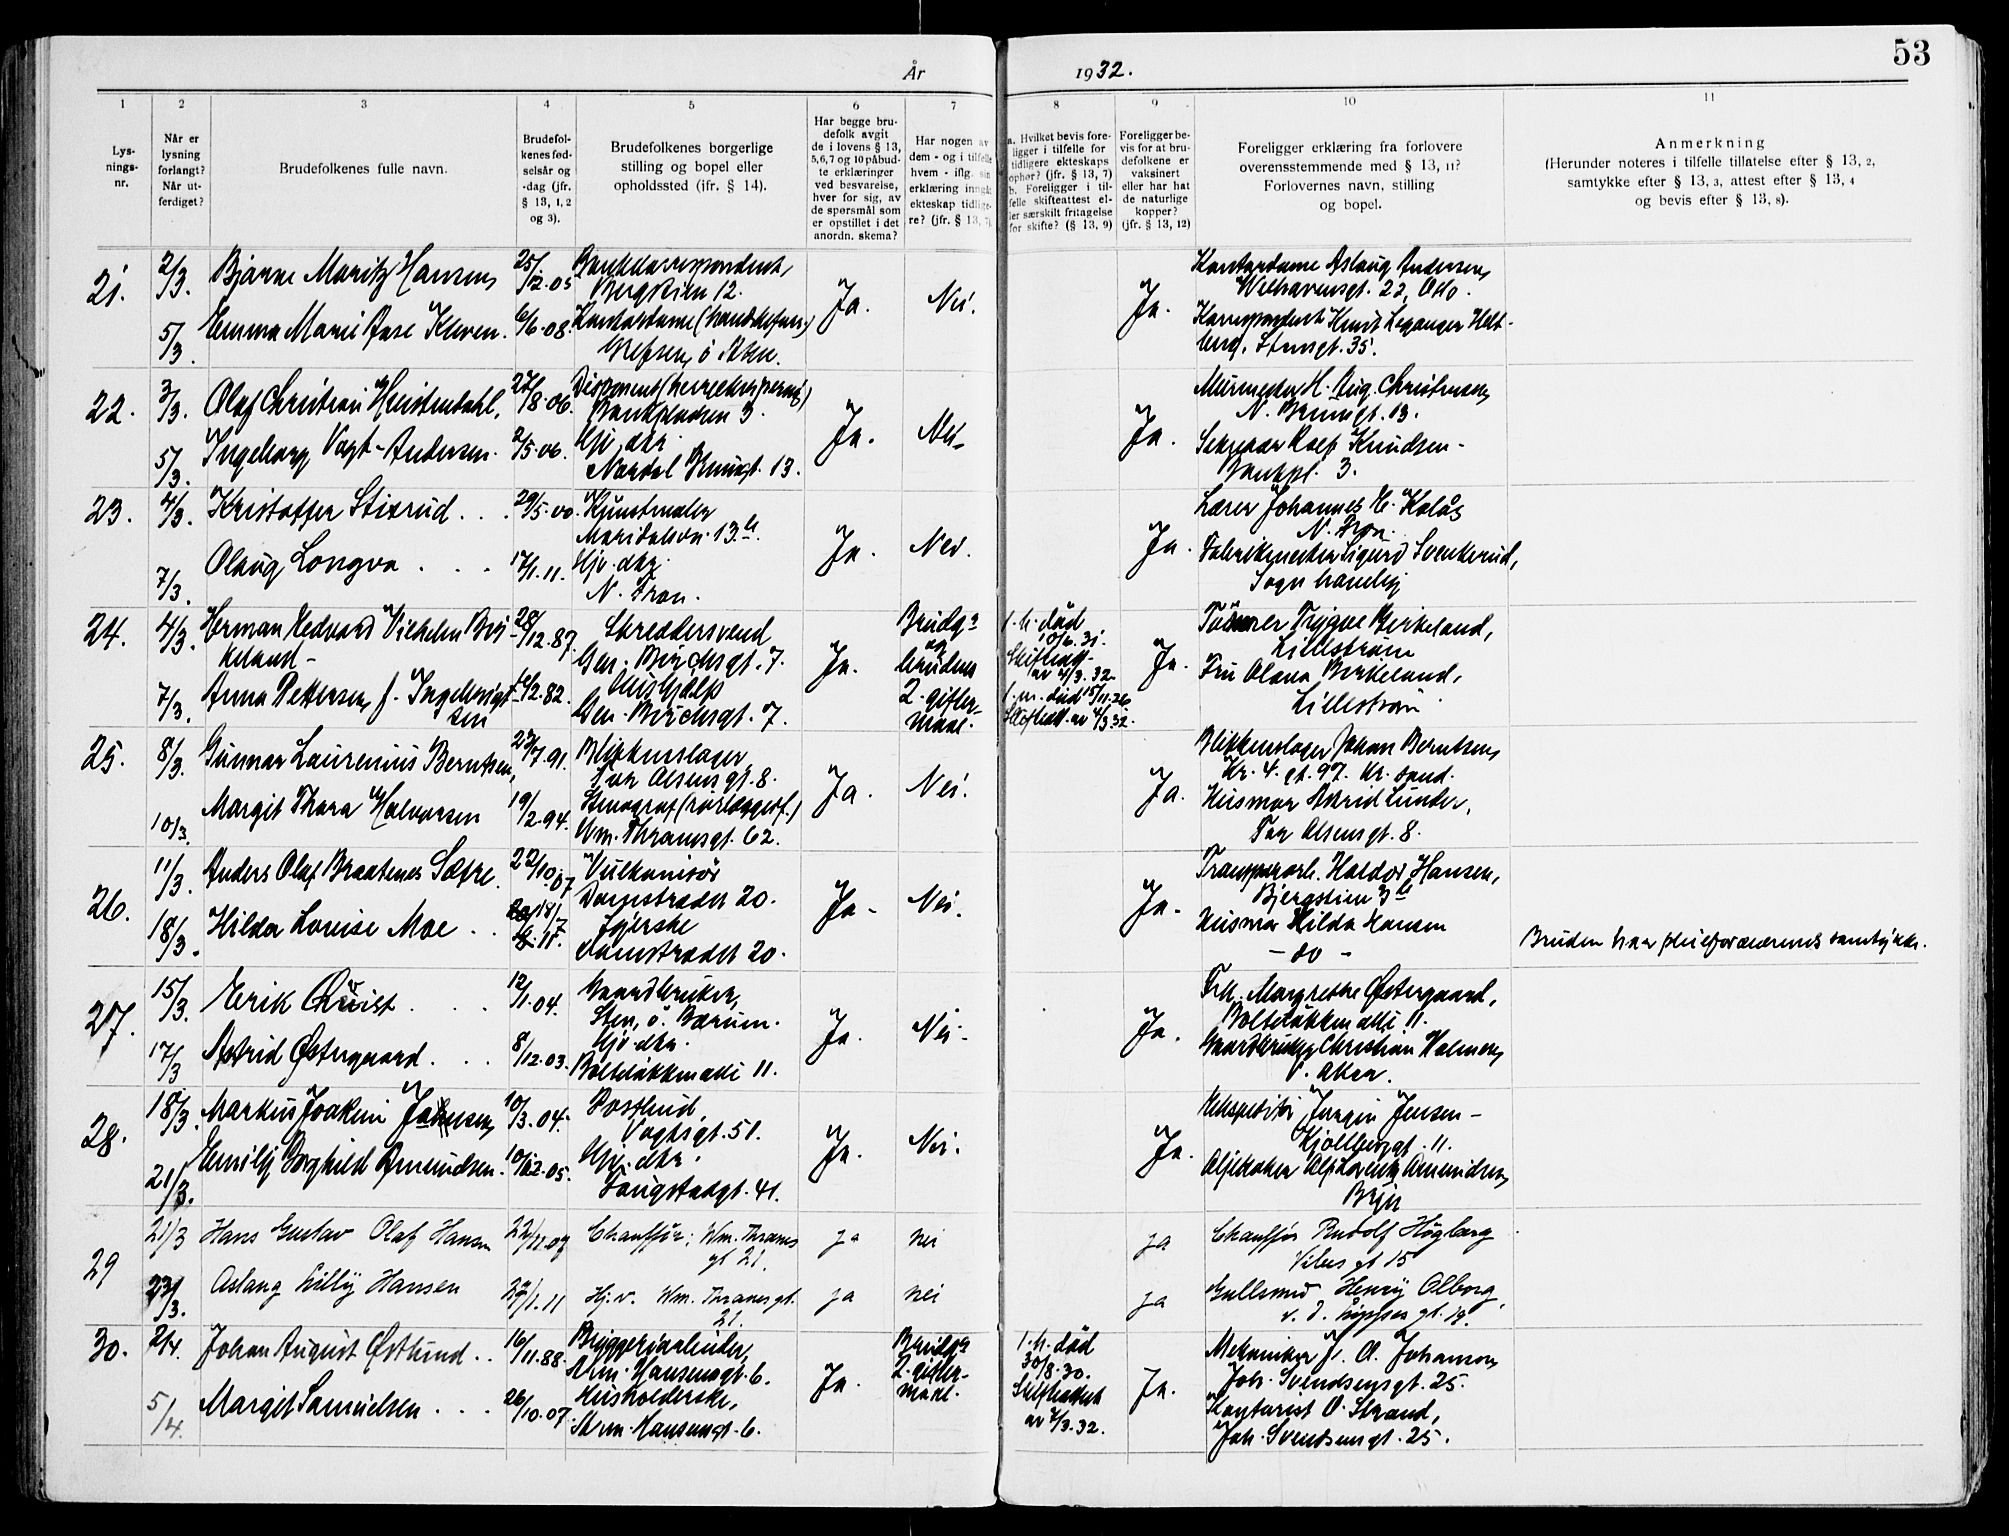 53
År 1932.
1 2 3 4 5 6 7 8 9 10 11
Lysningsnr.
Når er lysning forlangt? Når utferdiget?
Brudefolkenes fulle navn.
Brudefolkenes fødselsår og -dag (jfr. § 13, 1, 2 og 3).
Brudefolkenes borgerlige stilling og bopel eller opholdssted (jfr. § 14).
Har begge brudefolk avgit de i lovens § 13, 5, 6, 7 og 10 påbudte erklæringer ved besvarelse, hver for sig, av de spørsmål som er opstillet i det anordn. skema?
Har nogen av dem - og i tilfelle hvem - iflg. sin erklæring inngått ekteskap tidligere? (jfr. § 13, 7)
a. Hvilket bevis foreligger i tilfelle for tidligere ekteskaps ophør? (jfr. § 13, 7)
b. Foreligger i tilfelle skifteattest eller særskilt fritagelse for skifte? (§ 13, 9)
Foreligger bevis for at brudefolkene er vaksinert eller har hat de naturlige kopper? (jfr. § 13, 12)
Foreligger erklæring fra forlovere overensstemmende med § 13, 11? Forlovernes navn, stilling og bopel.
Anmerkning
(Herunder noteres i tilfelle tillatelse efter § 13, 2, samtykke efter § 13, 3, attest efter § 13, 4 og bevis efter § 13, 8).
21. 2/3. Bjarne Moritz Hansen 25/12.05 Bankkorrespondent, 12. Ja. Nei. Ja. Kontordame Aslaug Andersen,
Welhavensgt. 22, Oslo.
5/3. Emma Marie Aase Kleven. 6/6.08. Kontordame Korrespondent Knut Leganger Helt-
Grefsen, ø. Aker. berg, Stensgt. 35.
22. 3/3. Olaf Christian 27/8.06. Disponent Ja. Nei Ja. Murmester H. Aug. Christensen
Bankpladsen 3. N. Brunsgt. 13.
5/3. Ingeborg Vogt-Andersen. 2/5.06. Hjv. dtr. Sekretær Rolf Knudsen -
Nordal Brunsgt. 13. Bankpl. 3.
23. 4/3. Kristoffer Stixrud . . . 29/5.00. Kunstmaler Ja. Nei. Ja. Lærer Johannes H. Kolås
Maridalsvn. 13 b. N. Fron.
7/3. Olaug Longva . . . 17/1.11. Hjv. dtr. Fabrikmester Sigurd Svenkerud,
N. Fron. Sogn haveby
24. 4/3. Herman Edvard Vilhelm Bir- 28/12.87. Skreddersvend Ja. Brudg. og bruden 2. gifter-maal. 1. h. død 31. Ja. Trygve Birkeland,
keland - Gen. Birchsgt. 7. Skifteatt. av 4/3.32. Lillestrøm
7/3. Anna Pettersen, f. Ingebrigt- sen 12.82. Hushjælp 1. m. død 15/11.26 Fru Olava Birkeland,
Gen. Birchsgt. 7. Skifteatt. av 4/3.32. Lillestrøm
25. 8/3. Gunnar Laurenius Berntsen, 23/7.91. Blikkenslager, Ja. Nei. Ja. Blikkenslager Johan Berntsen,
Tor Olsensgt. 8. Kr. 4. gt. 97. Kr. sand.
10/3. Margit Thora Halvorsen 19/2.94. Husmor Astrid Lunder,
Wm. Thranesgt. 62. Tor Olsensgt. 8.
26. 11/3. Anders Olaf Braatenes Sætre. 22/10.07 Vulkanisør Ja. Nei. Ja. Transportarb. Haldor Hansen,
Damstrædet 20. Bjergstien 3 b
18/3. Hilda Louise Moe . . 18/7 11. Syerske Husmor Hilda Hansen
Damstrædet 20. - do -
Bruden har pleieforældrenes samtykke.
27. 15/3. Erik Qvist . . . 12/1.04. Gaardbruker, Ja. Nei. Ja. Frk. Margrethe Østergaard,
Sten, ø. Bærum. Bolteløkken allé 11.
17/3 Astrid Østergaard . . . 8/12.03. Hjv. dtr. Gaardbruker Christian Holmsen
Bolteløkken allé 11. V. Aker.
28. 18/3. Markus Joakim Jensen, 10/3.04. Postbud, Ja. Nei. Ja. Ekspeditør Jørgen Jensen -
Vogtsgt. 51. Kjølberggt. 11.
21/3. Emily Borghild Amundsen. 10/12.05. Hjv. dtr. Oljekoker Alf Lorentz Amundsen,
Langstadgt. 41. Bryn
29 21/3 Hans Gustav Olaf Hansen 22/11.07 Chauffør, Wm. Thranes ja nei ja Chauffør Rudolf Høgberg
gt 21. Vibes gt 15
23/3. Aslaug Lilly Hansen 27/1.11 Hj.v. Wm. Thranes gt. ja nei ja Gullsmed Henry Olborg,
21. v. d. Lippes gt. 19.
30. 2/4. Johan August Østlund . . 16/11.88. Bryggeriarbeider, Ja. Brudg. 2. gifter-maal. 1. h. død 30/8.30. Ja. Mekaniker J. A. Johanson,
Arm. Hansensgt. 6. Skifteattest av 7/3.32. Joh. Svendsensgt. 25.
5/4. Margit Samuelsen . . . 26/10.07. Husholderske, Kontorist O. Strand,
Arm. Hansensgt. 6. Joh. Svendsensgt. 25.